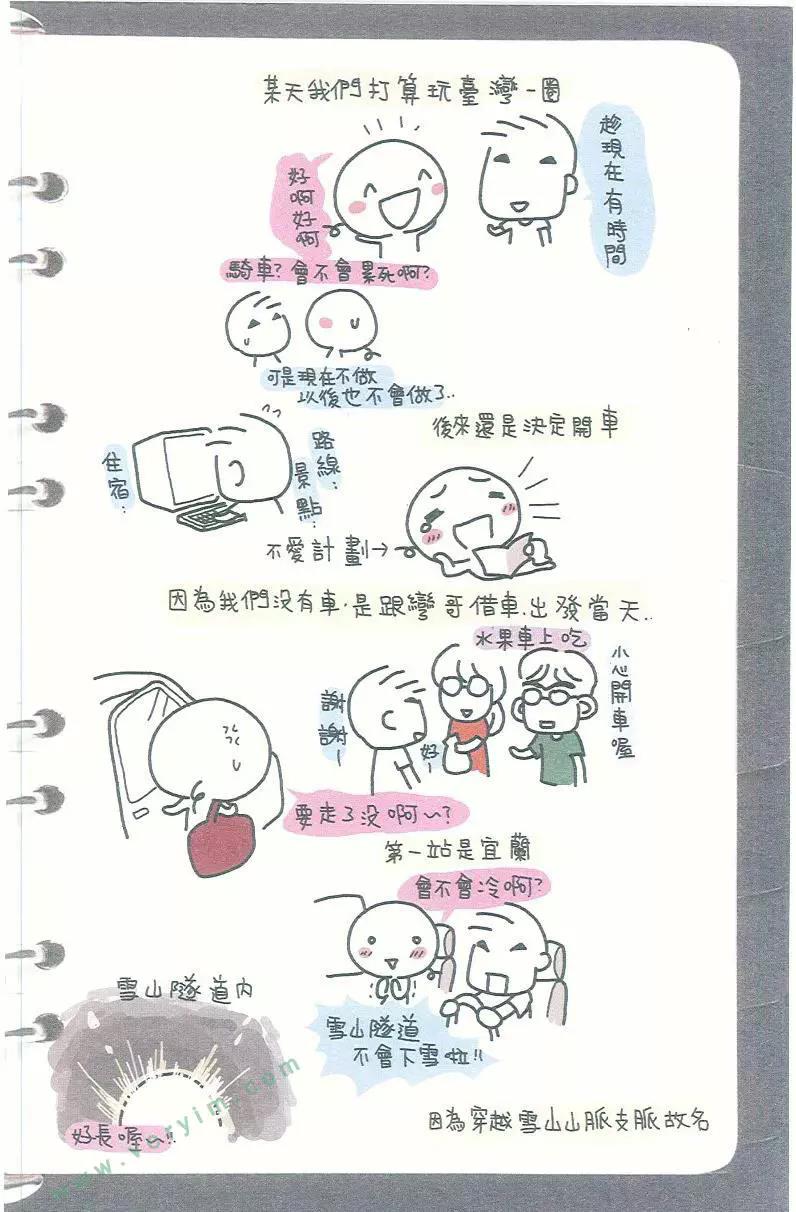 某天我們打算玩臺灣一圈
趁現在有時間
好啊好啊
騎車?會不會累死啊?
可是現在不做
以後也不會做了..
後來還是決定開車
住宿..
路線..
景點..
不愛計劃→
因為我們沒有車.是跟彎哥借車.出發當天..
水果車上吃
小心開車喔
謝謝~
好~
要走了沒啊~?
第一站是宜蘭
會不會冷啊?
雪山隧道內
雪山隧道
不會下雪啦!!
好長喔~!!
因為穿越雪山山脈支脈故名
www.voryim.com